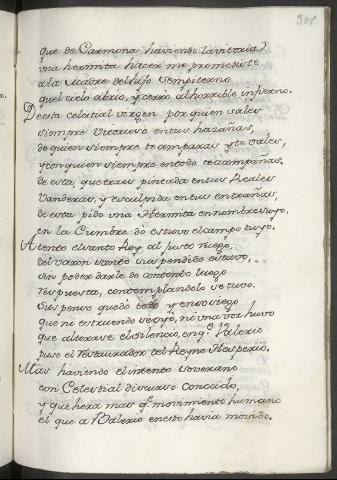 301
que de Carmona haviendo la vitoria
vna hermita hacer me prometiste
a la Madre del hijo Sempiterno
quel cielo abrio, y cerro al horrible infierno.
Desta celestial virgen por quien sales
siempre Vitorioso en tus hazañas,
de quien siempre te amparas y te vales,
y con quien siempre en todo te acompañas.
de esta, que traes pintada en tus Reales
Vanderas, y esculpida en tus entrañas,
de esta pido vna Hermita en nombre suyo,
en la Cumbre dò estuvo el campo tuyo.
Atento el santo Rey al justo ruego,
del varon santo suspendido estuvo,
sin poder darle de contento luego
respuesta, contemplandolo se tuvo.
Suspenso quedò todo y en sosiego
que ni estruendo se oyò, ni vna voz huvo
que alterase el silencio, en q.º Valerio
puso el restaurador del Reyno Hesperio.
Mas haviendo el intento soverano
con Celestial discurso conocido,
y que hera mas q.e movimiento humano
el que a Valerio en esto havia movido.